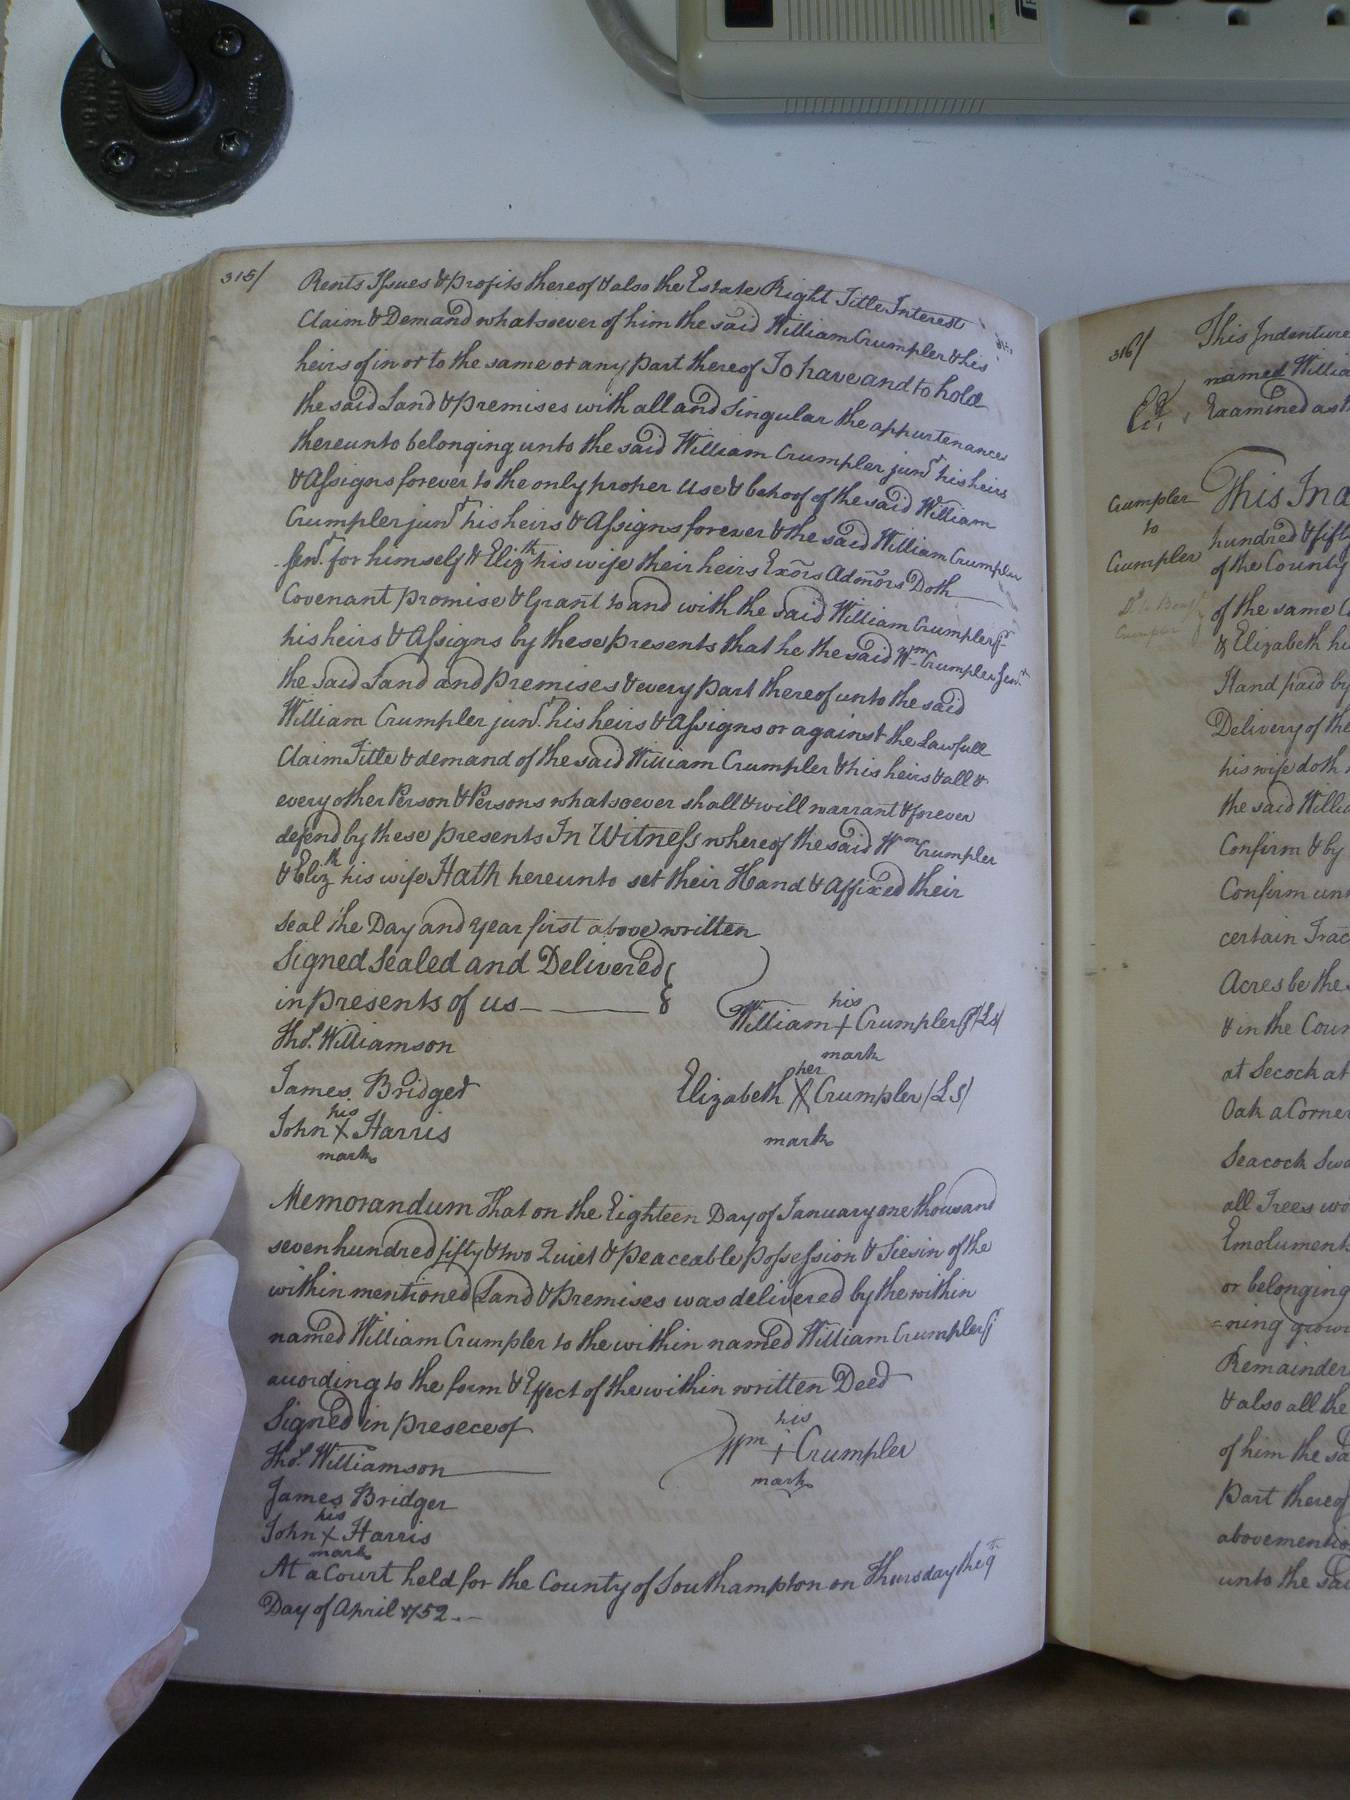 315/
Rents Issues & profits thereof & also the Estate Right Title Interest
Claim & Demand whatsoever of him the said William Crumpler & his
heirs of in or to the same or any part thereof To have and to hold
the said Land & premises with all and Singular the appurtenances
thereunto belonging unto the said William Crumpler junr his heirs
& Assigns forever to the only proper Use & behoof of the said William
Crumpler junr his heirs & Assigns forever & the said William Crumpler
Senr for himself & Elizth his wife their heirs Exors Admors Doth
Covenant promise & Grant to and with the said William Crumpler jr
his heirs & Assigns by these presents that he the said Wm Crumpler Senr
the said Land and premises & every part thereof unto the said
William Crumpler junr his heirs & Assigns or against the Lawfull
Claim Title & demand of the said William Crumpler & his heirs & all &
every other Person & Persons whatsoever shall & will warrant & forever
defend by these presents In Witness whereof the said Wm Crumpler
& Elizth his wife Hath hereunto set their Hand & Affixed their
seal the Day and year first above written
Signed Sealed and Delivered
in presents of us
his
William + Crumpler Sr (LS)
mark
Thos. Williamson
James Bridger
her
Elizabeth X Crumpler (LS)
mark
his
John X Harris
mark
Memorandum That on the Eighteen Day of January one thousand
seven hundred fifty & two Quiet & peaceable possession & Siesin of the
within mentioned Land & premises was delivered by the within
named William Crumpler to the within named William Crumpler jr
acording to the form & Effect of the within written Deed
Signed in presece of
his
Wm + Crumpler
mark
Thos. Williamson
James Bridger
his
John X Harris
mark
At a Court held for the County of Southampton on Thursday the 9th
Day of April 1752.
316/
This Indenture
named Willia
Ex
Examined as th
Crumpler
to
Crumpler
This Ind
hundred & fift
of the County
of the same C
& Elizabeth hi
Hand paid by
Delivery of the
his wife doth
the said Willia
Confirm & by
Confirm un
certain Trac
Acres be the
& in the Coun
at Secock at
Oak a Corne
Seacock Swa
all Trees wo
Emolument
or belonging
=ning grow
Remainder
& also all the
of him the sa
part thereof
abovementio
unto the sai